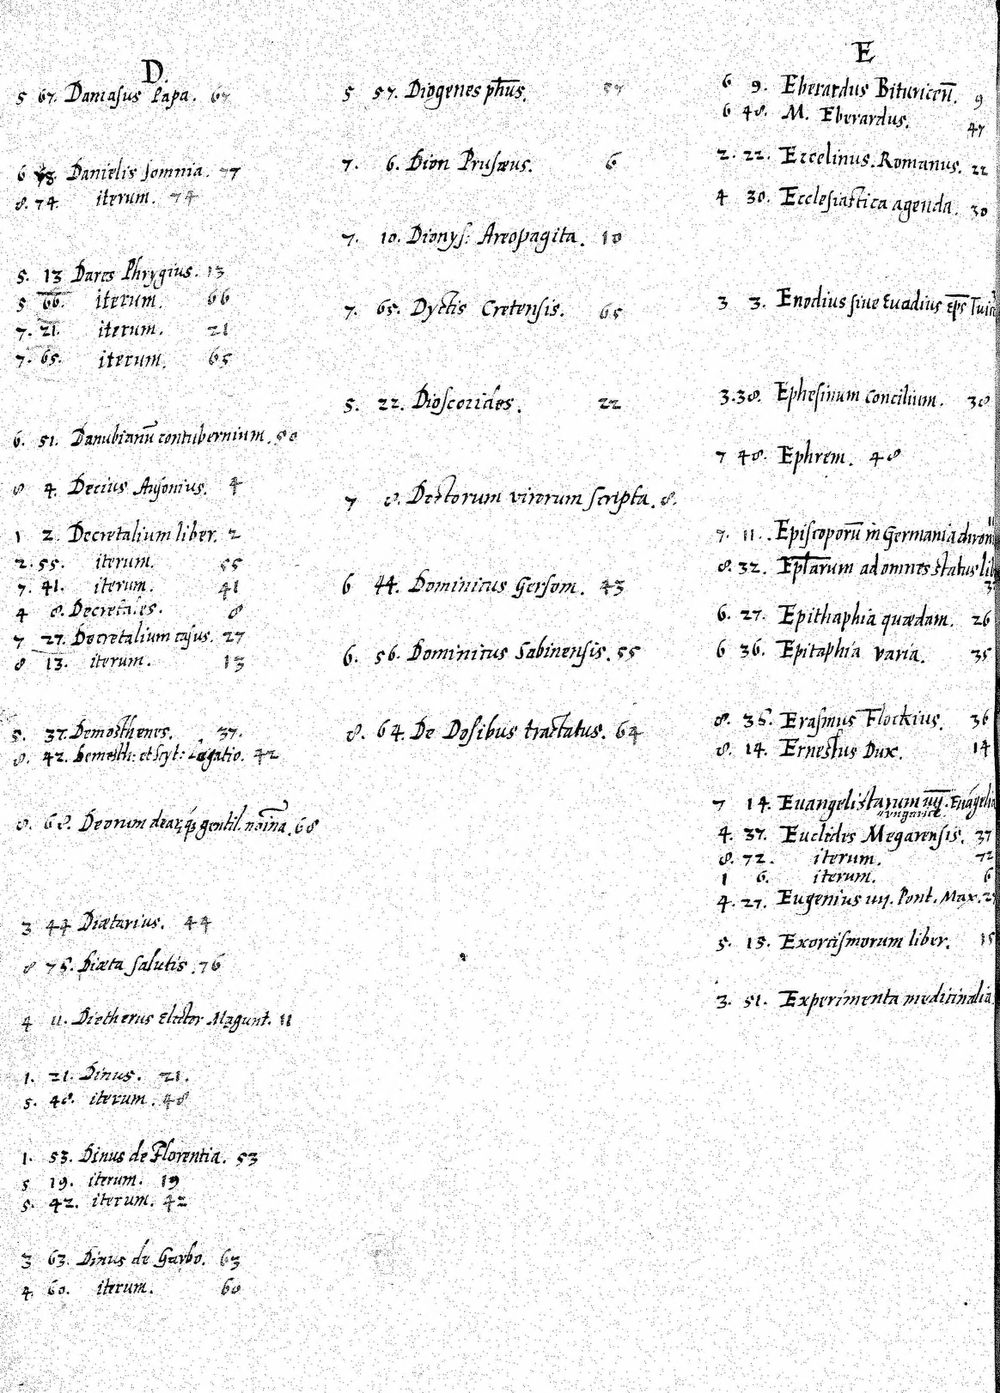 D.
5 67. Damasus Papa. 67
6 78 Danielis somnia. 77
8. 74. iterum. 74
5. 13 Dares Phrygius. 13
5 66. iterum. 66
7. 21. iterum. 21
7. 65. iterum. 65
6. 51. Danubianū contubernium. 50
8 4. Decius Ausonius. 4
1 2. Decretalium liber. 2
2. 55. iterum. 55
7. 41. iterum. 41
4 8. Decretales. 8
7 27. Decretalium casus. 27
8 13. iterum. 13
5. 37. Demosthenes. 37.
8. 42. Demosth: et Scyt: Legatio. 42
8. 68. Deorum gentil. 68
3 44 Diætarius. 44
8 75. Diæta salutis. 76
4 11. Dietherus Elector Magunt. 11
1. 21. Dinus. 21.
5. 48. iterum. 48
1. 53. Dinus de Florentia. 53
5 19. iterum. 19
5. 42. iterum. 42
3 63. Dinus de Garbo. 63
4. 60. iterum. 60
5 57. Diogenes phūs. 57
7. 6. Dion Prusæus. 6
7. 10. Dionys: Areopagita. 10
7. 65. Dyctis Cretensis. 65
5. 22. Dioscorides. 22
7 8. Doctorum virorum scripta. 8.
6 44. Dominicus Gersom. 43
6. 56. Dominicus Sabinensis. 55
8. 64. De Dosibus tractatus. 64
E
6 9. Eberardus Bituricen̄. 9
6 48. M. Eberardus. 47
2. 22. Ezcelinus. Romanus. 22
4 30. Ecclesiastica agenda. 30
3 3. Enodius siue Euadius ep̄s
3. 38. Ephesinum concilium. 38
7 48. Ephrem. 48
7. 11. Episcoporū in Germania 11
8. 32. Ep̄larum ad omnes status
6. 27. Epithaphia quædam. 26
6 36. Epitaphia varia. 35
8. 35. Erasmus Flockius. 36
8. 14. Ernestus Dux. 14
7 14. Euangelistarum
4. 37. Euclides Megarensis. 37
8. 72. iterum. 72
1 6. iterum. 6
4. 27. Eugenius iiij. Pont. Max.
5. 15. Exorcismorum liber. 15
3. 51. Experimenta medicinalia